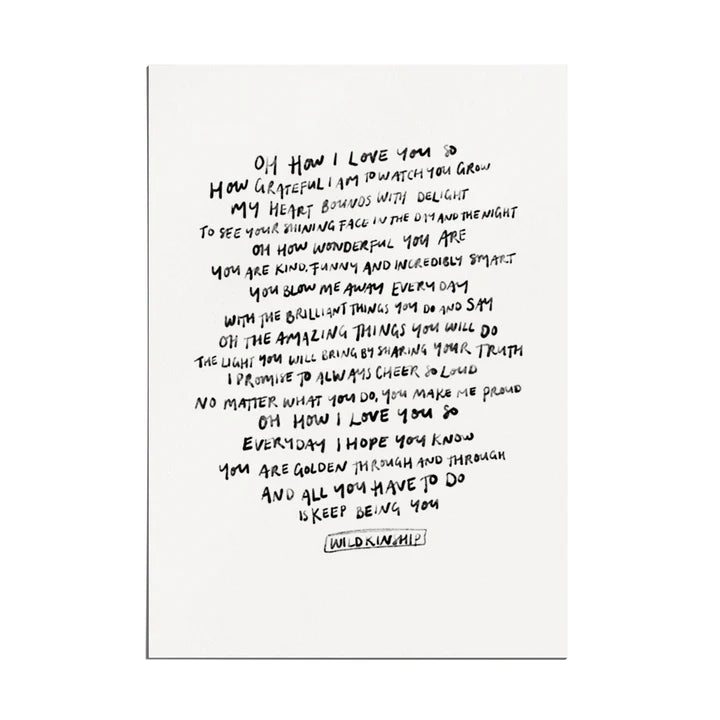 OH HOW I LOVE YOU SO
HOW GRATEFUL I AM TO WATCH YOU GROW
MY HEART BOUNDS WITH DELIGHT
TO SEE YOUR SHINING FACE IN THE DAY AND THE NIGHT
OH HOW WONDERFUL YOU ARE
YOU ARE KIND, FUNNY AND INCREDIBLY SMART
YOU BLOW ME AWAY EVERY DAY
WITH THE BRILLIANT THINGS YOU DO AND SAY
OH THE AMAZING THINGS YOU WILL DO
THE LIGHT YOU WILL BRING BY SHARING YOUR TRUTH
I PROMISE TO ALWAYS CHEER SO LOUD
NO MATTER WHAT YOU DO, YOU MAKE ME PROUD
OH HOW I LOVE YOU SO
EVERYDAY I HOPE YOU KNOW
YOU ARE GOLDEN THROUGH AND THROUGH
AND ALL YOU HAVE TO DO
IS KEEP BEING YOU
WILDKINSHIP